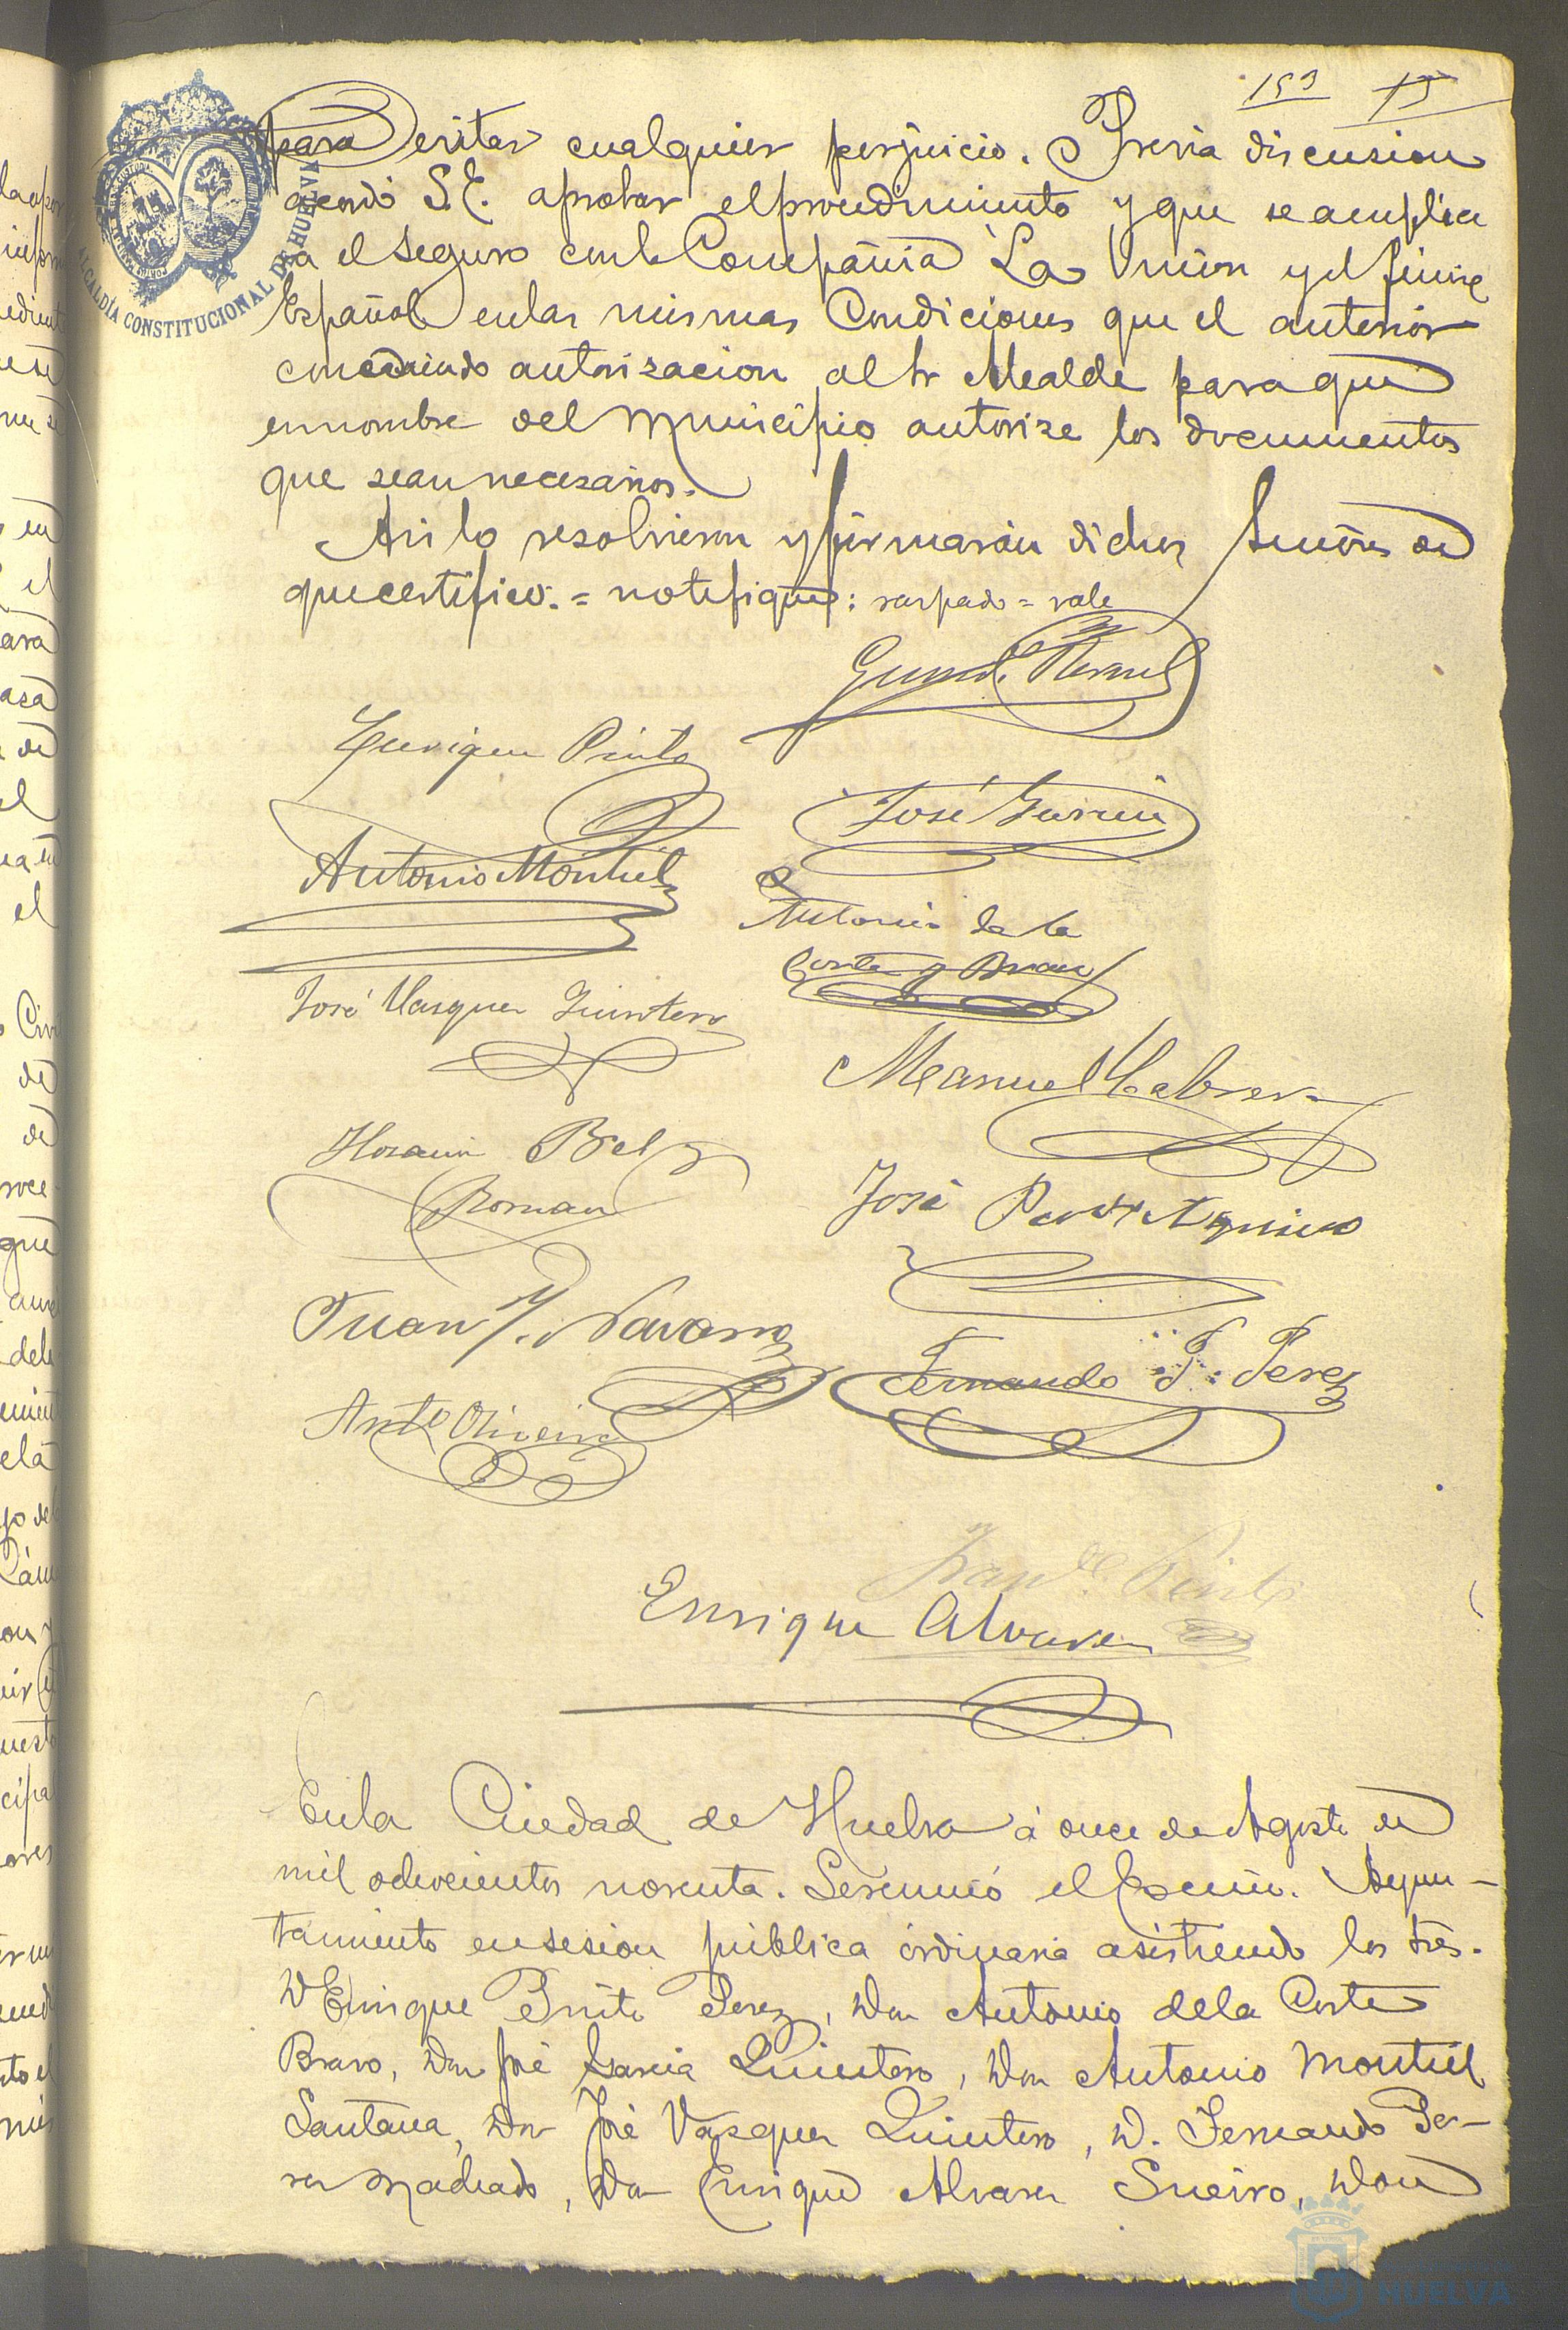 153 15
para evitar cualquier perjuicio. Previa discusion
acordó S.E. aprobar el procedimiento y que se amplia
ra el seguro con la Compañia La Union y el Fenix
Español en las mismas Condiciones que el anterior
concediendo autorizacion al Sr Alcalde para que
en nombre del Municipio autorize los documentos
que sean necesarios.
Asi lo resolvieron y firmarán dichos Señores de
que certifico. = notifique: raspado = vale
ALCALDÍA CONSTITUCIONAL DE HUELVA
Enrique Pinto
José Garcia
Antonio Montiel
Antonio de la
Corte y Bravo
José Vazquez Quintero
Manuel Cabrera
Horacio Bel
Roman
José
Juan J. Navarro
Fernando P. Perez
Antº Oliveira
Enrique Alvarez
En la Ciudad de Huelva á once de Agosto de
mil ochocientos noventa. Se reunió el Excmo. Ayun-
tamiento en sesion pública órdinaria asistiendo los Sres.
D Enrique Pinto Perez, Don Antonio de la Corte
Bravo, Don José Garcia Quintero, Don Antonio Montiel
Santana, Don José Vazquez Quintero, D. Fernando Pe-
rez Machado, Don Enrique Alvarez Sueiro, Don
HUELVA